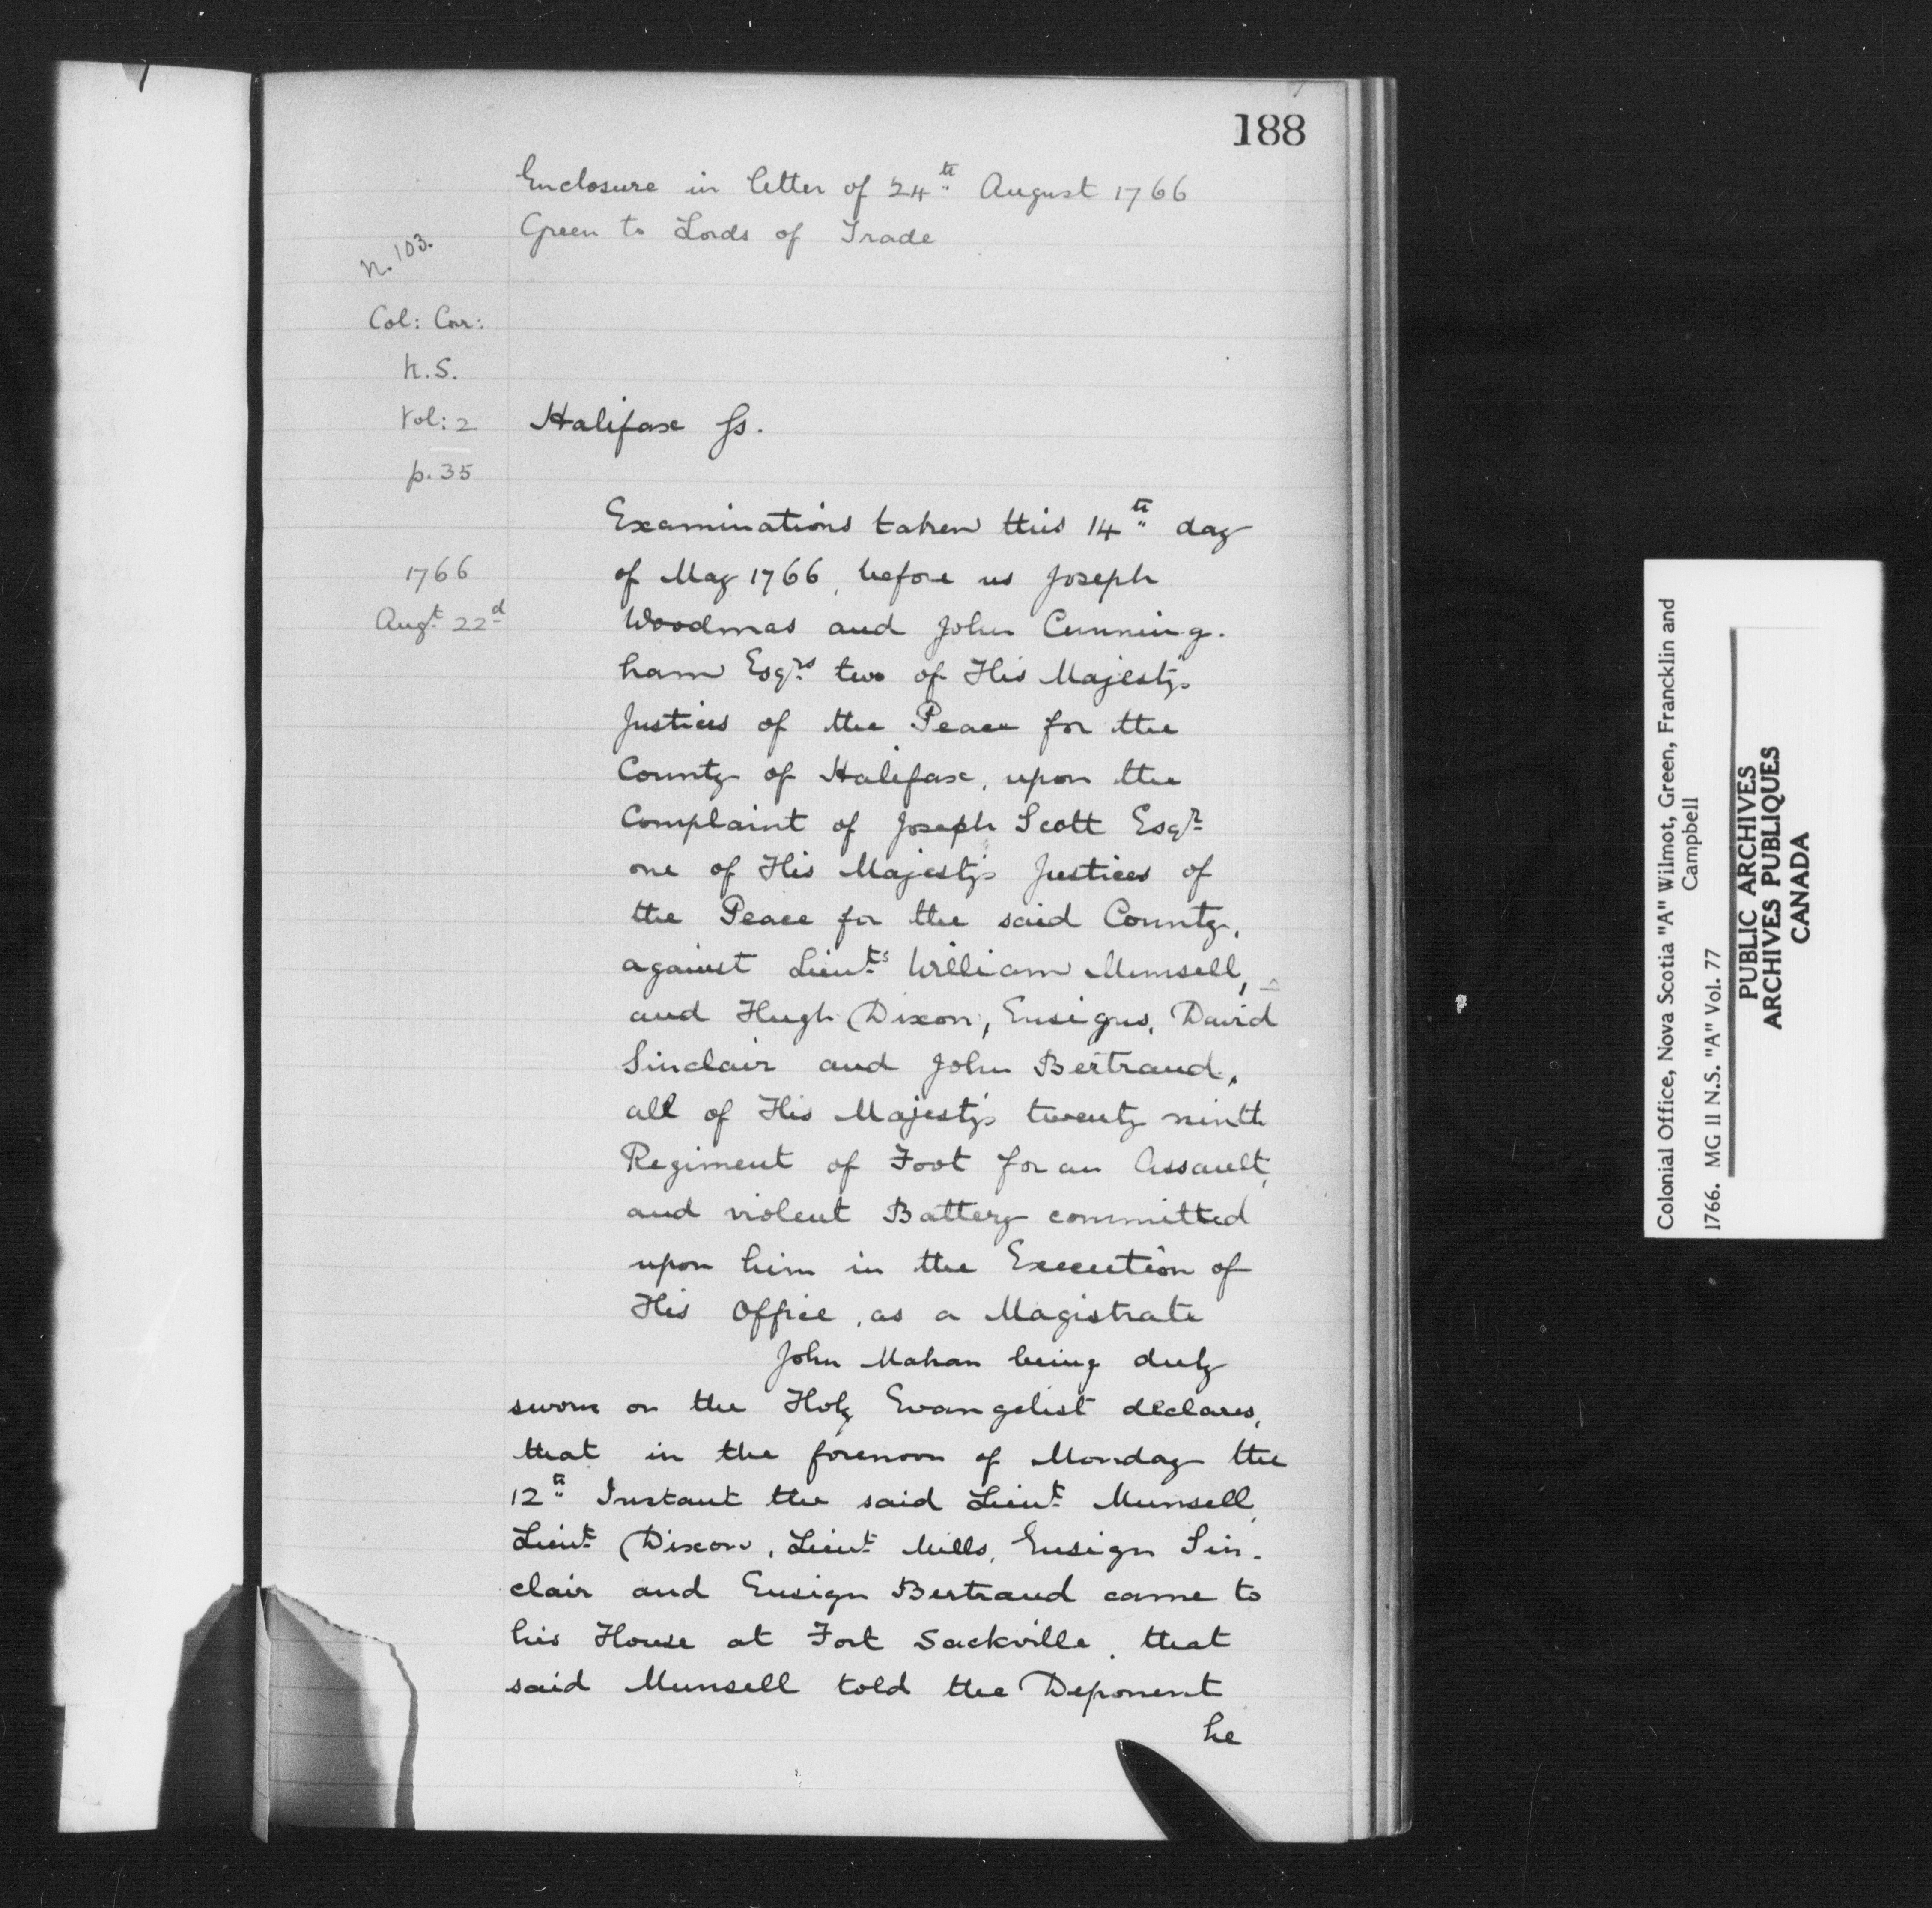 188
Enclosure in letter of 24th August 1766
Green to Lords of Trade
N. 103.
Col: Cor:
N.S.
Vol: 2
p. 35
1766
Augt 22d
Halifax ss.
Examinations taken this 14th day
of May 1766, before us Joseph
Woodmas and John Cunning-
ham Esqrs two of His Majesty's
Justices of the Peace for the
County of Halifax, upon the
Complaint of Joseph Scott Esqr
one of His Majesty's Justices of
the Peace for the said County,
against Lieuts William Munsell,
and Hugh Dixon, Ensigns, David
Sinclair and John Bertrand,
all of His Majesty's twenty ninth
Regiment of Foot for an Assault,
and violent Battery committed
upon him in the Execution of
His Office, as a Magistrate
John Mahan being duly
sworn on the Holy Evangelist declares,
that in the forenoon of Monday the
12th Instant the said Lieut Munsell,
Lieut Dixon, Lieut Mills, Ensign Sin-
clair and Ensign Bertrand came to
his House at Fort Sackville, that
said Munsell told the Deponent
he
Colonial Office, Nova Scotia "A" Wilmot, Green, Francklin and
Campbell
1766. MG 11 N.S. "A" Vol. 77
PUBLIC ARCHIVES
ARCHIVES PUBLIQUES
CANADA